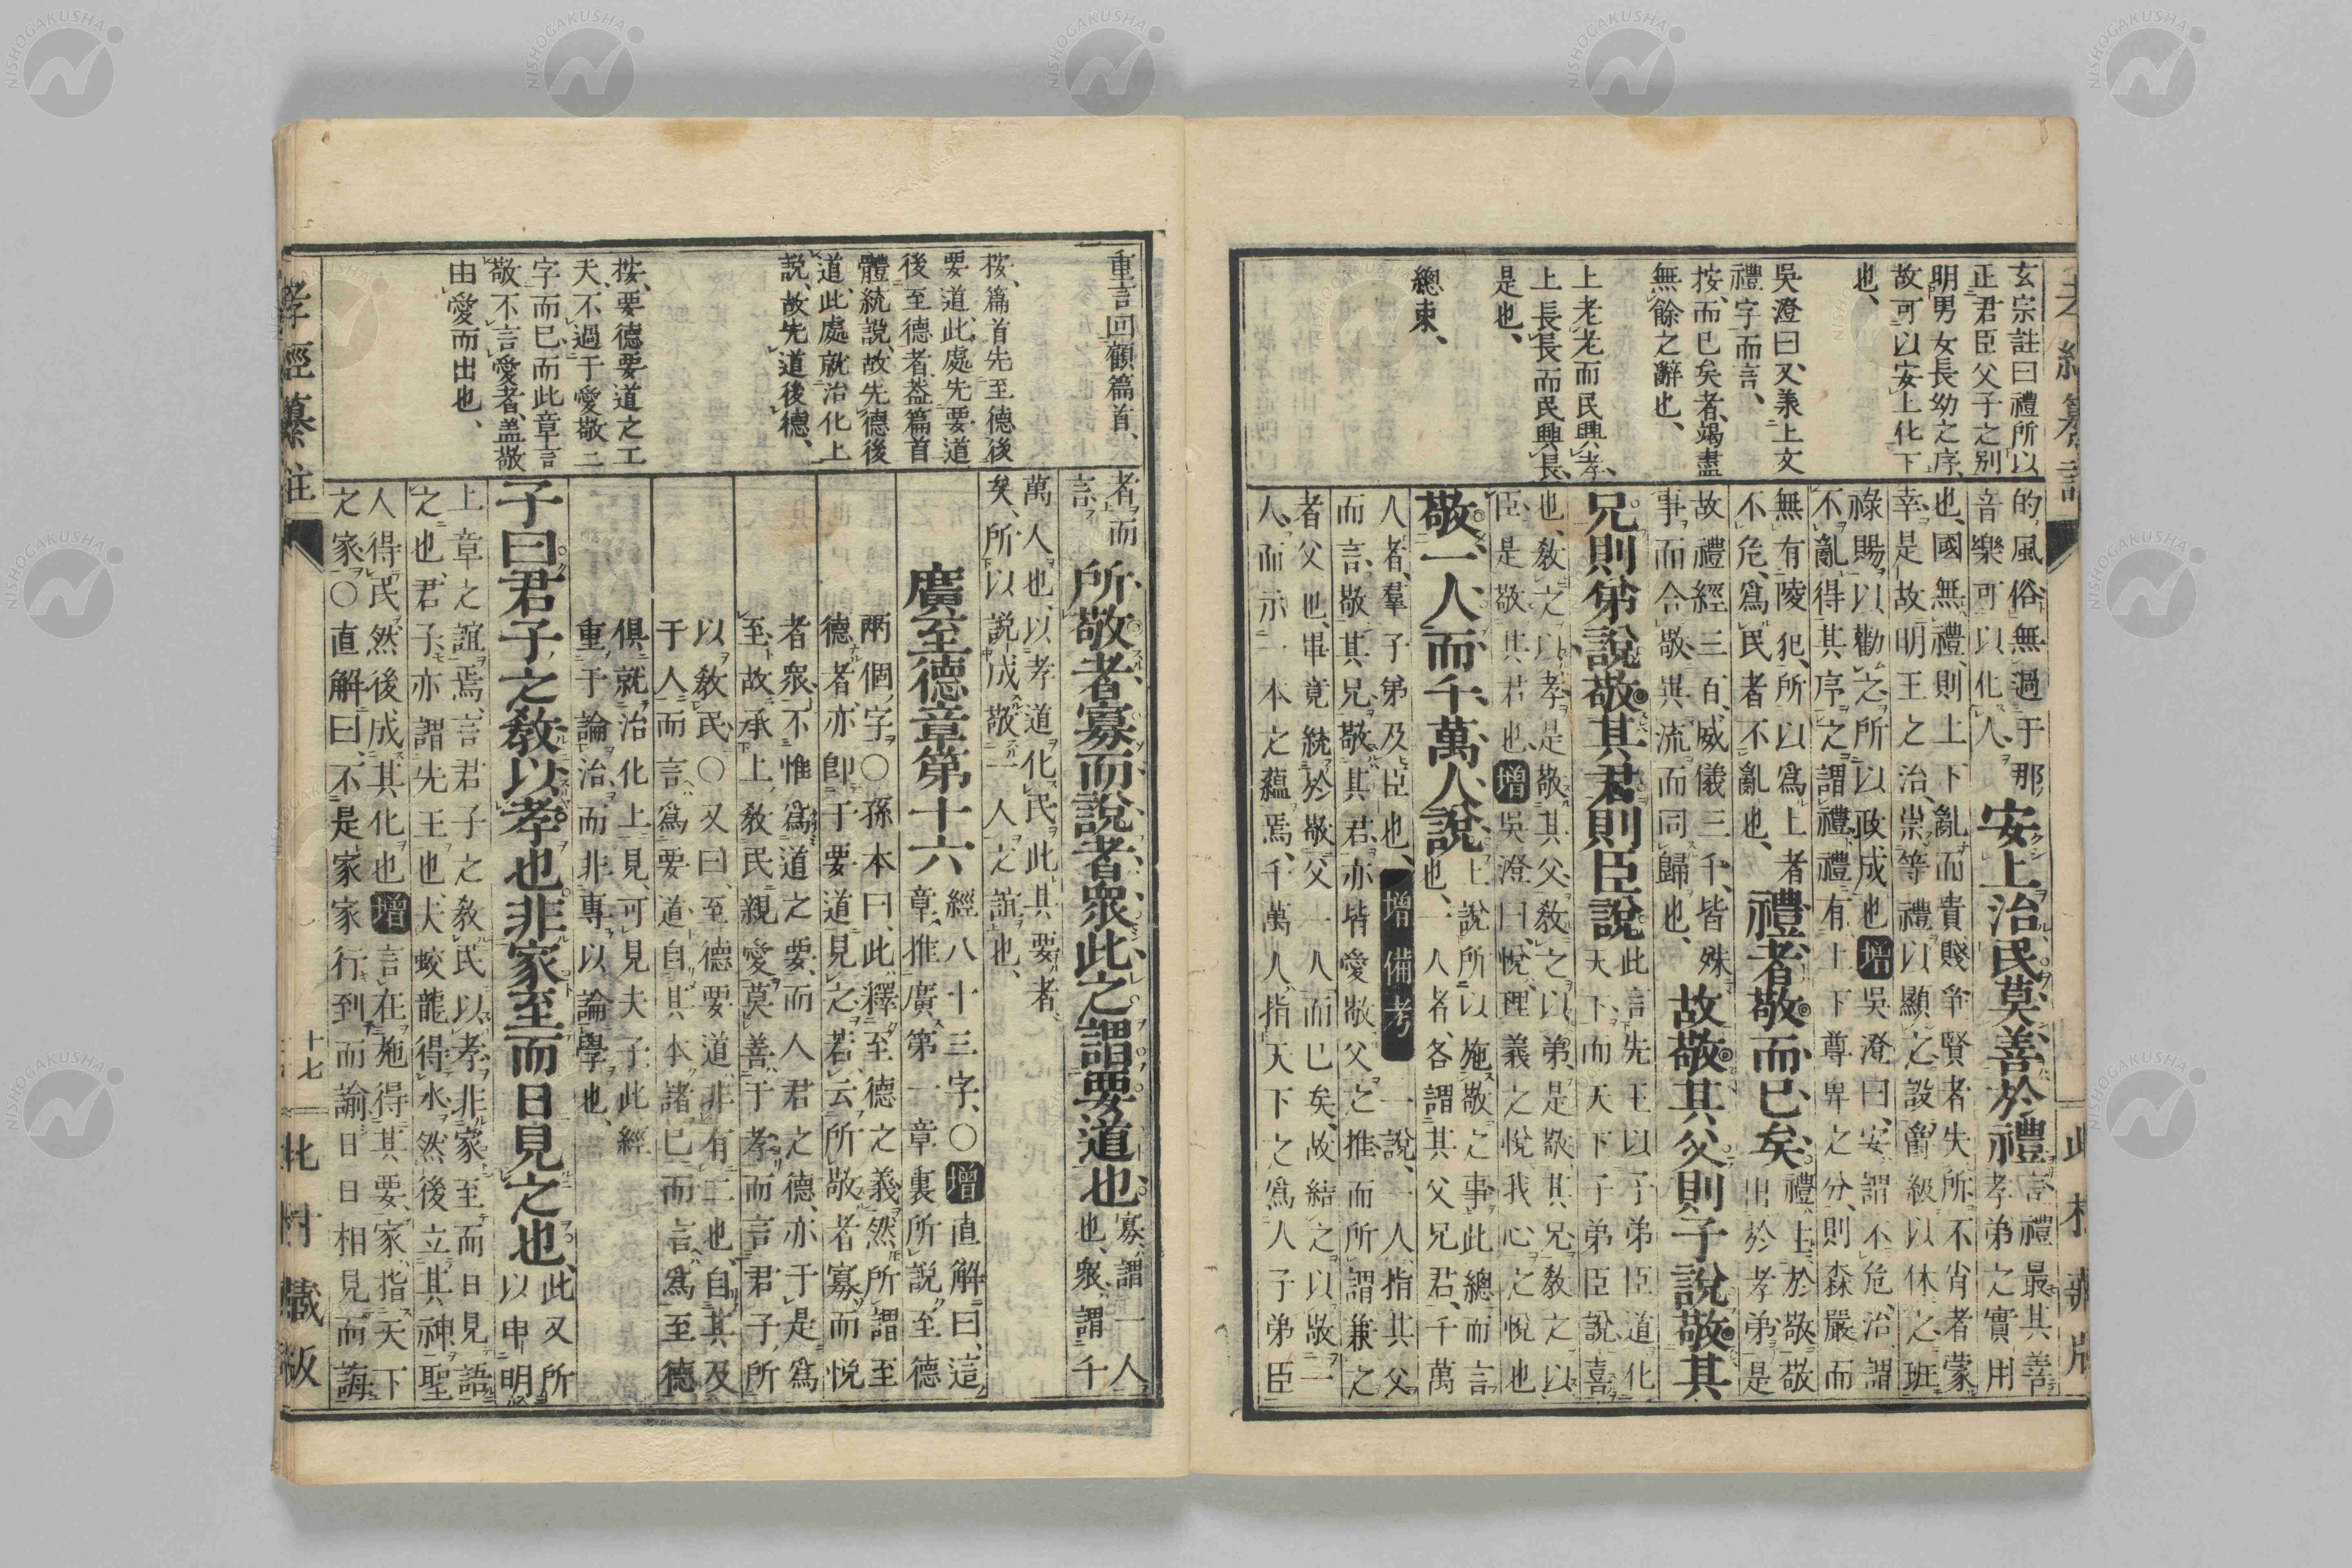 玄宗註曰禮所以
正君臣父子之別
明男女長幼之序
故可以安上化下
也、
吳澄曰又義上文
禮字而言、
按、而已矣者、竭盡
無餘之辭也、
上老老而民興孝、
上長長而民興長、
是也、
總束、
的風俗無過于那
音樂可以化人、
安上治民莫善於禮
言禮最其善
孝弟之實用
也、國無禮、則上下亂而貴賤爭賢者失所不肖者蒙
幸是故明王之治、崇等禮以顯之設爵級以休之班
祿賜以勸之所以政成也增吳澄曰、安謂不危、治謂
不亂、得其序之謂禮、禮有上下尊卑之分、則森嚴而
無有陵犯、所以爲上者
不危、爲民者不亂也、
禮者敬而已矣
禮、主於敬敬
出於孝弟是
故禮經三百、威儀三千、皆殊
事而合敬異流而同歸也、
故敬其父則子說敬其
兄則弟說敬其君則臣說
此言先王以子弟臣道化
天下而天下子弟臣說喜
也、敎之以孝是敬其父、敎之以弟、是敬其兄敎之以
臣是敬其君也、增吳澄曰、悅、理義之悅我心之悅也
敬一人而千萬人說
上說所以施敬之事此總而言
也、一人者、各謂其父兄君、千萬
人者、羣子弟及臣也、增備考一說、一人、指其父
而言、敬其兄、敬其君、亦皆愛敬父之推而所謂兼之
者父也、畢竟統於敬父一人而已矣、故結之以敬一
人、而示一本之蘊焉、千萬人、指天下之爲人子弟臣
重言回顧篇首、
按、篇首先至德後
要道、此處先要道
後至德者、蓋篇首
體統說、故先德後
道、此處就治化上
說、故先道後德、
按、要德要道之工
夫、不過于愛敬二
字而已、而此章言
敬不言愛者、蓋敬
由愛而出也、
者而
言、
所敬者寡而說者衆此之謂要道也
寡、謂一人
也、衆、謂千
萬人也、以孝道化民此其要者
矣、所以說成敬一人之誼也、
廣至德章第十六
經八十三字、〇增直解曰、這
章、推廣第一章裏所說至德
兩個字〇孫本曰、此釋至德之義然所謂至
德者、亦卽于要道見之若云所敬者寡、而悅
者衆、不惟爲道之要、而人君之德、亦于是爲
至、故承上敎民親愛莫善于孝而言君子所
以敎民、〇又曰、至德要道、非有二也、自其及
于人而言、爲要道、自其本諸已而言、爲至德
俱就治化上見、可見夫子此經
重于論治、而非專以論學也、
子曰君子之敎以孝也非家至而日見之也
此又所
以申明
上章之誼焉、言君子之敎民以孝、非家至而日見語
之也、君子亦謂先王也、夫蛟龍得水然後立其神聖
人得民、然後成其化也增言在施得其要、家、指天下
之家、〇直解曰、不是家家行到而諭日日相見而誨
孝經纂註
十七
北村藏板